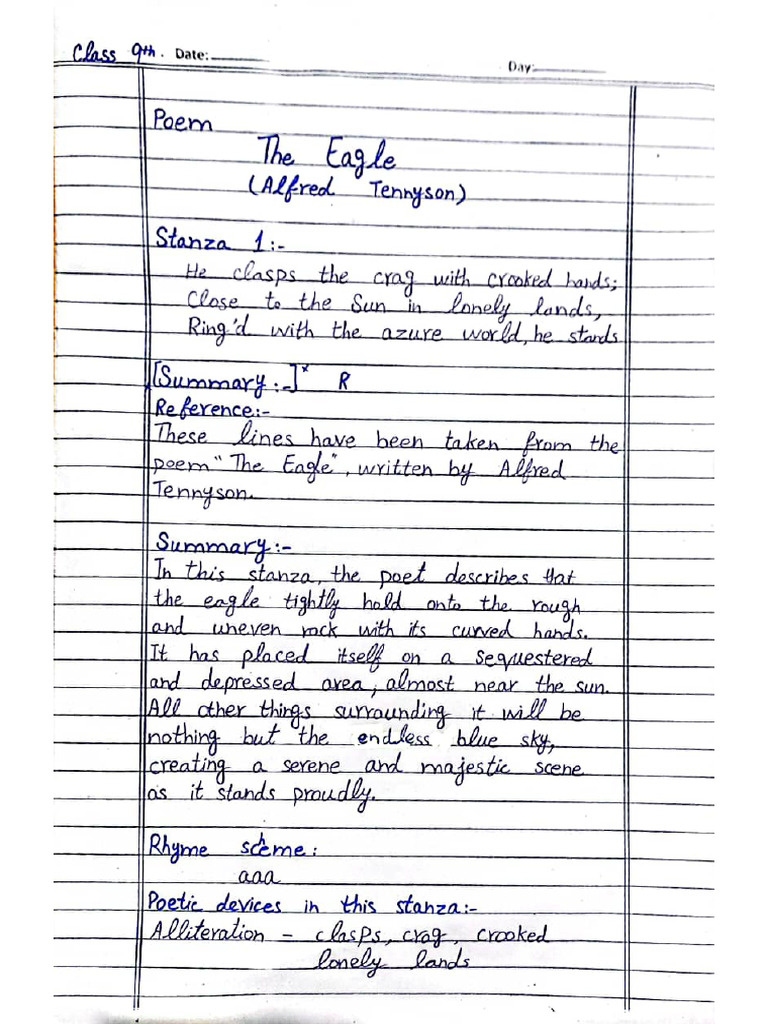 Class 9th. Date:
Day:
Poem
The Eagle
(Alfred Tennyson)
Stanza 1:-
He clasps the crag with crooked hands;
Close to the Sun in lonely lands,
Ring'd with the azure world, he stands
[Summary:-]* R
Reference:-
These lines have been taken from the
poem "The Eagle", written by Alfred
Tennyson.
Summary:-
In this stanza, the poet describes that
the eagle tightly hold onto the rough
and uneven rock with its curved hands.
It has placed itself on a sequestered
and depressed area, almost near the sun.
All other things surrounding it will be
nothing but the endless blue sky,
creating a serene and majestic scene
as it stands proudly.
Rhyme scheme:
aaa
Poetic devices in this stanza:-
Alliteration - clasps, crag, crooked
lonely lands